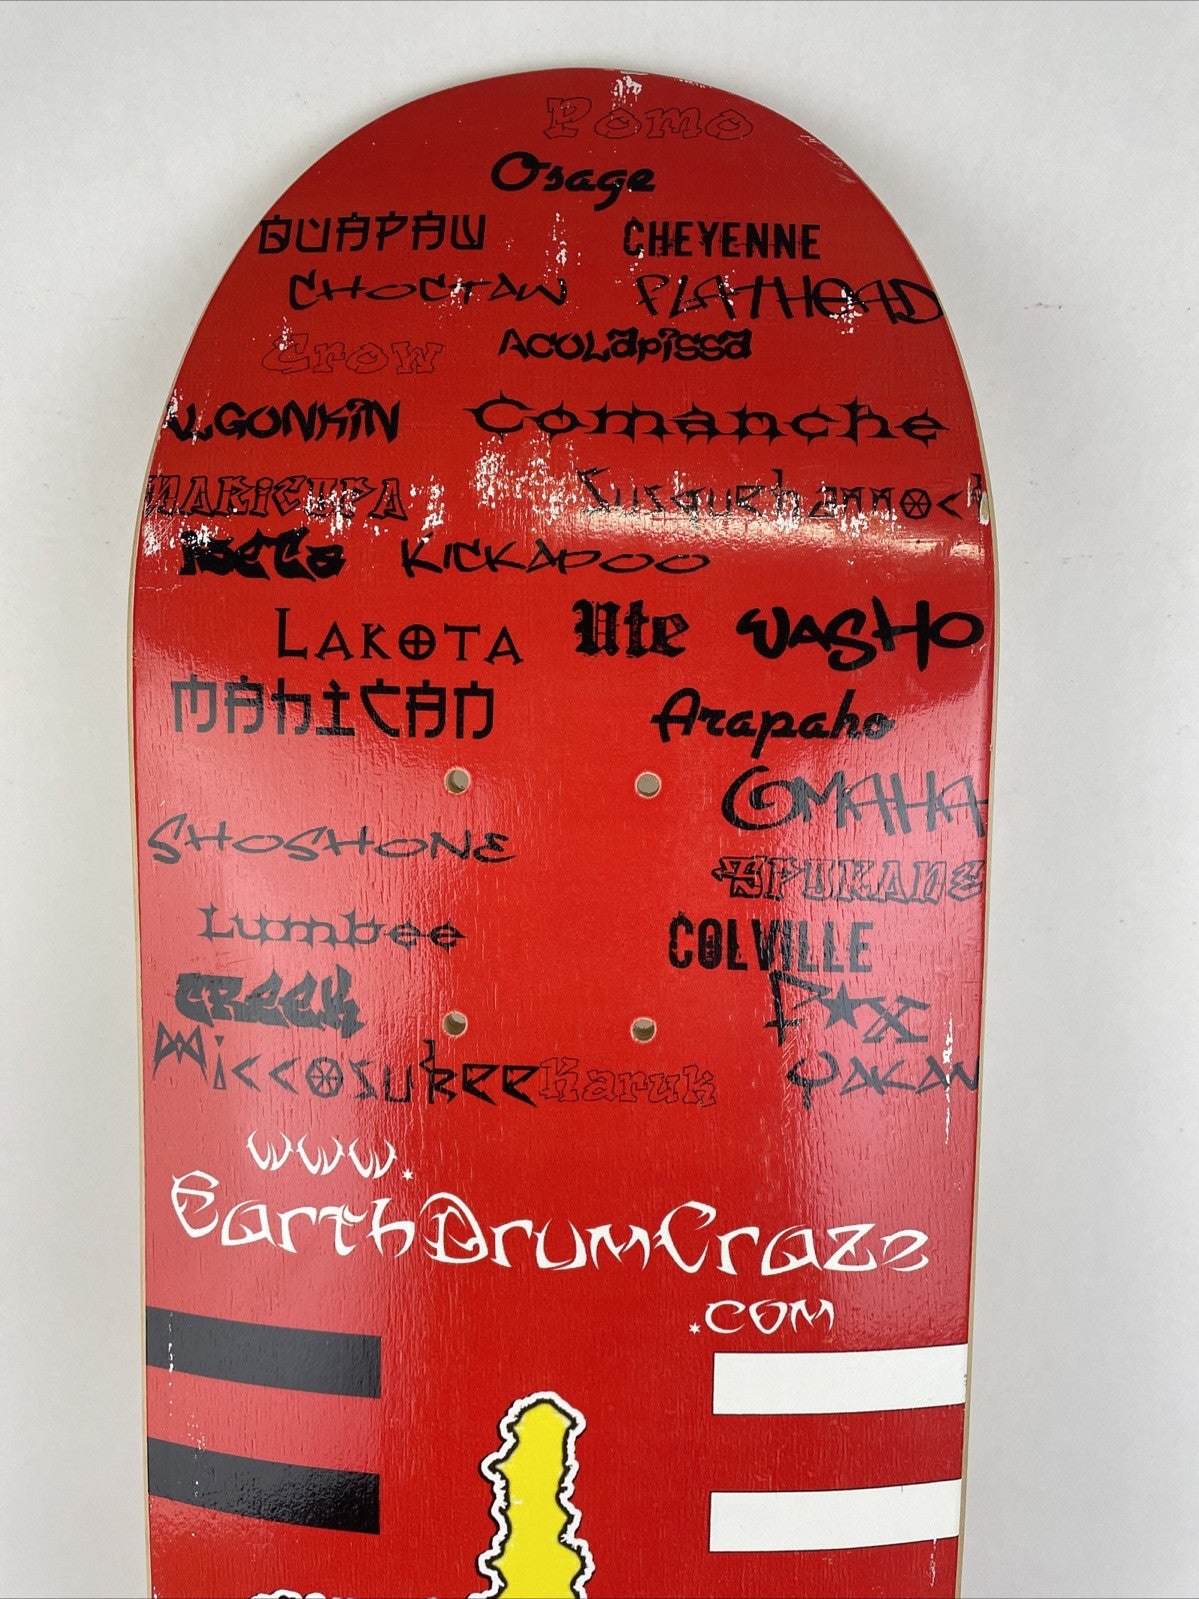 Pomo
Osage
QUAPAW CHEYENNE
CHOCTAW FLATHEAD
Crow ACOLAPISSA
ALGONKIN Comanche
MARICOPA Susquehannock
KICKAPOO
LAKOTA Ute WASHO
MAHICAN Arapaho
OMAHA
SHOSHONE
SPOKANE
Lumbee
COLVILLE
CREEK
FOX
Miccosukee Karuk
YAKAN
www.
EarthDrumCraze
.com